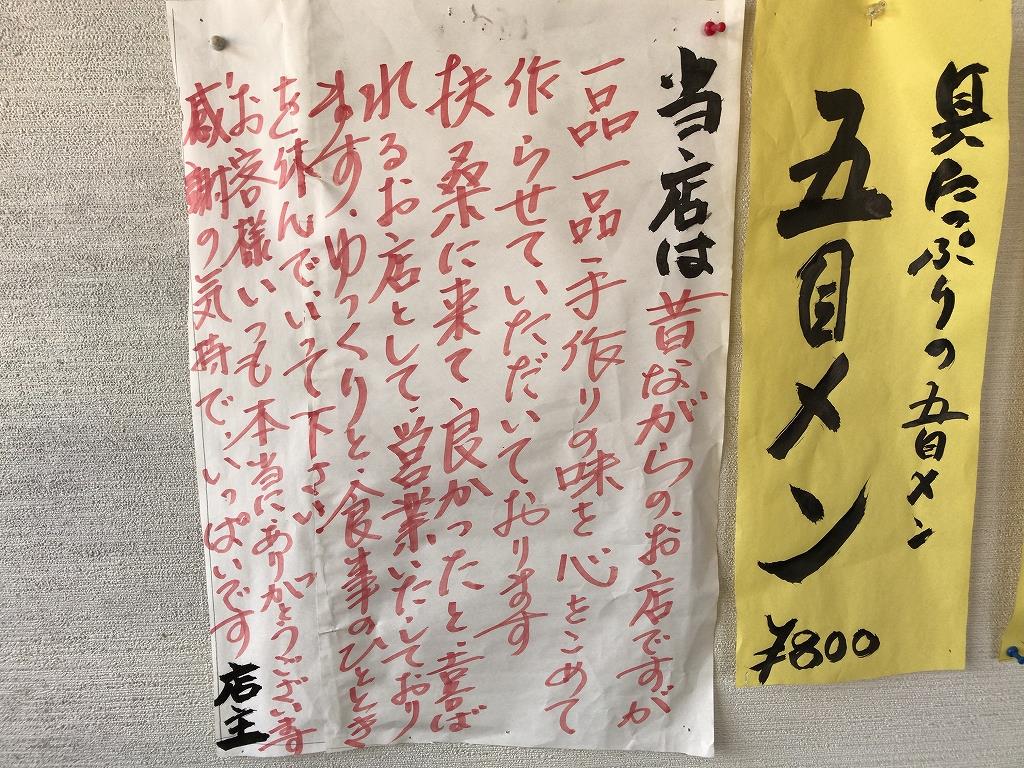 具たっぷりの五目メン
五目メン
¥800
当店は昔ながらの、お店ですが
一品一品手作りの味を心をこめて
作らせていただいております
扶桑に来て、良かったと、喜ば
れるお店として、営業いたしており
ます、ゆっくりと、食事のひととき
を休んでいって下さい
お客様いつも本当にありがとうございます
感謝の気持で、いっぱいです
店主